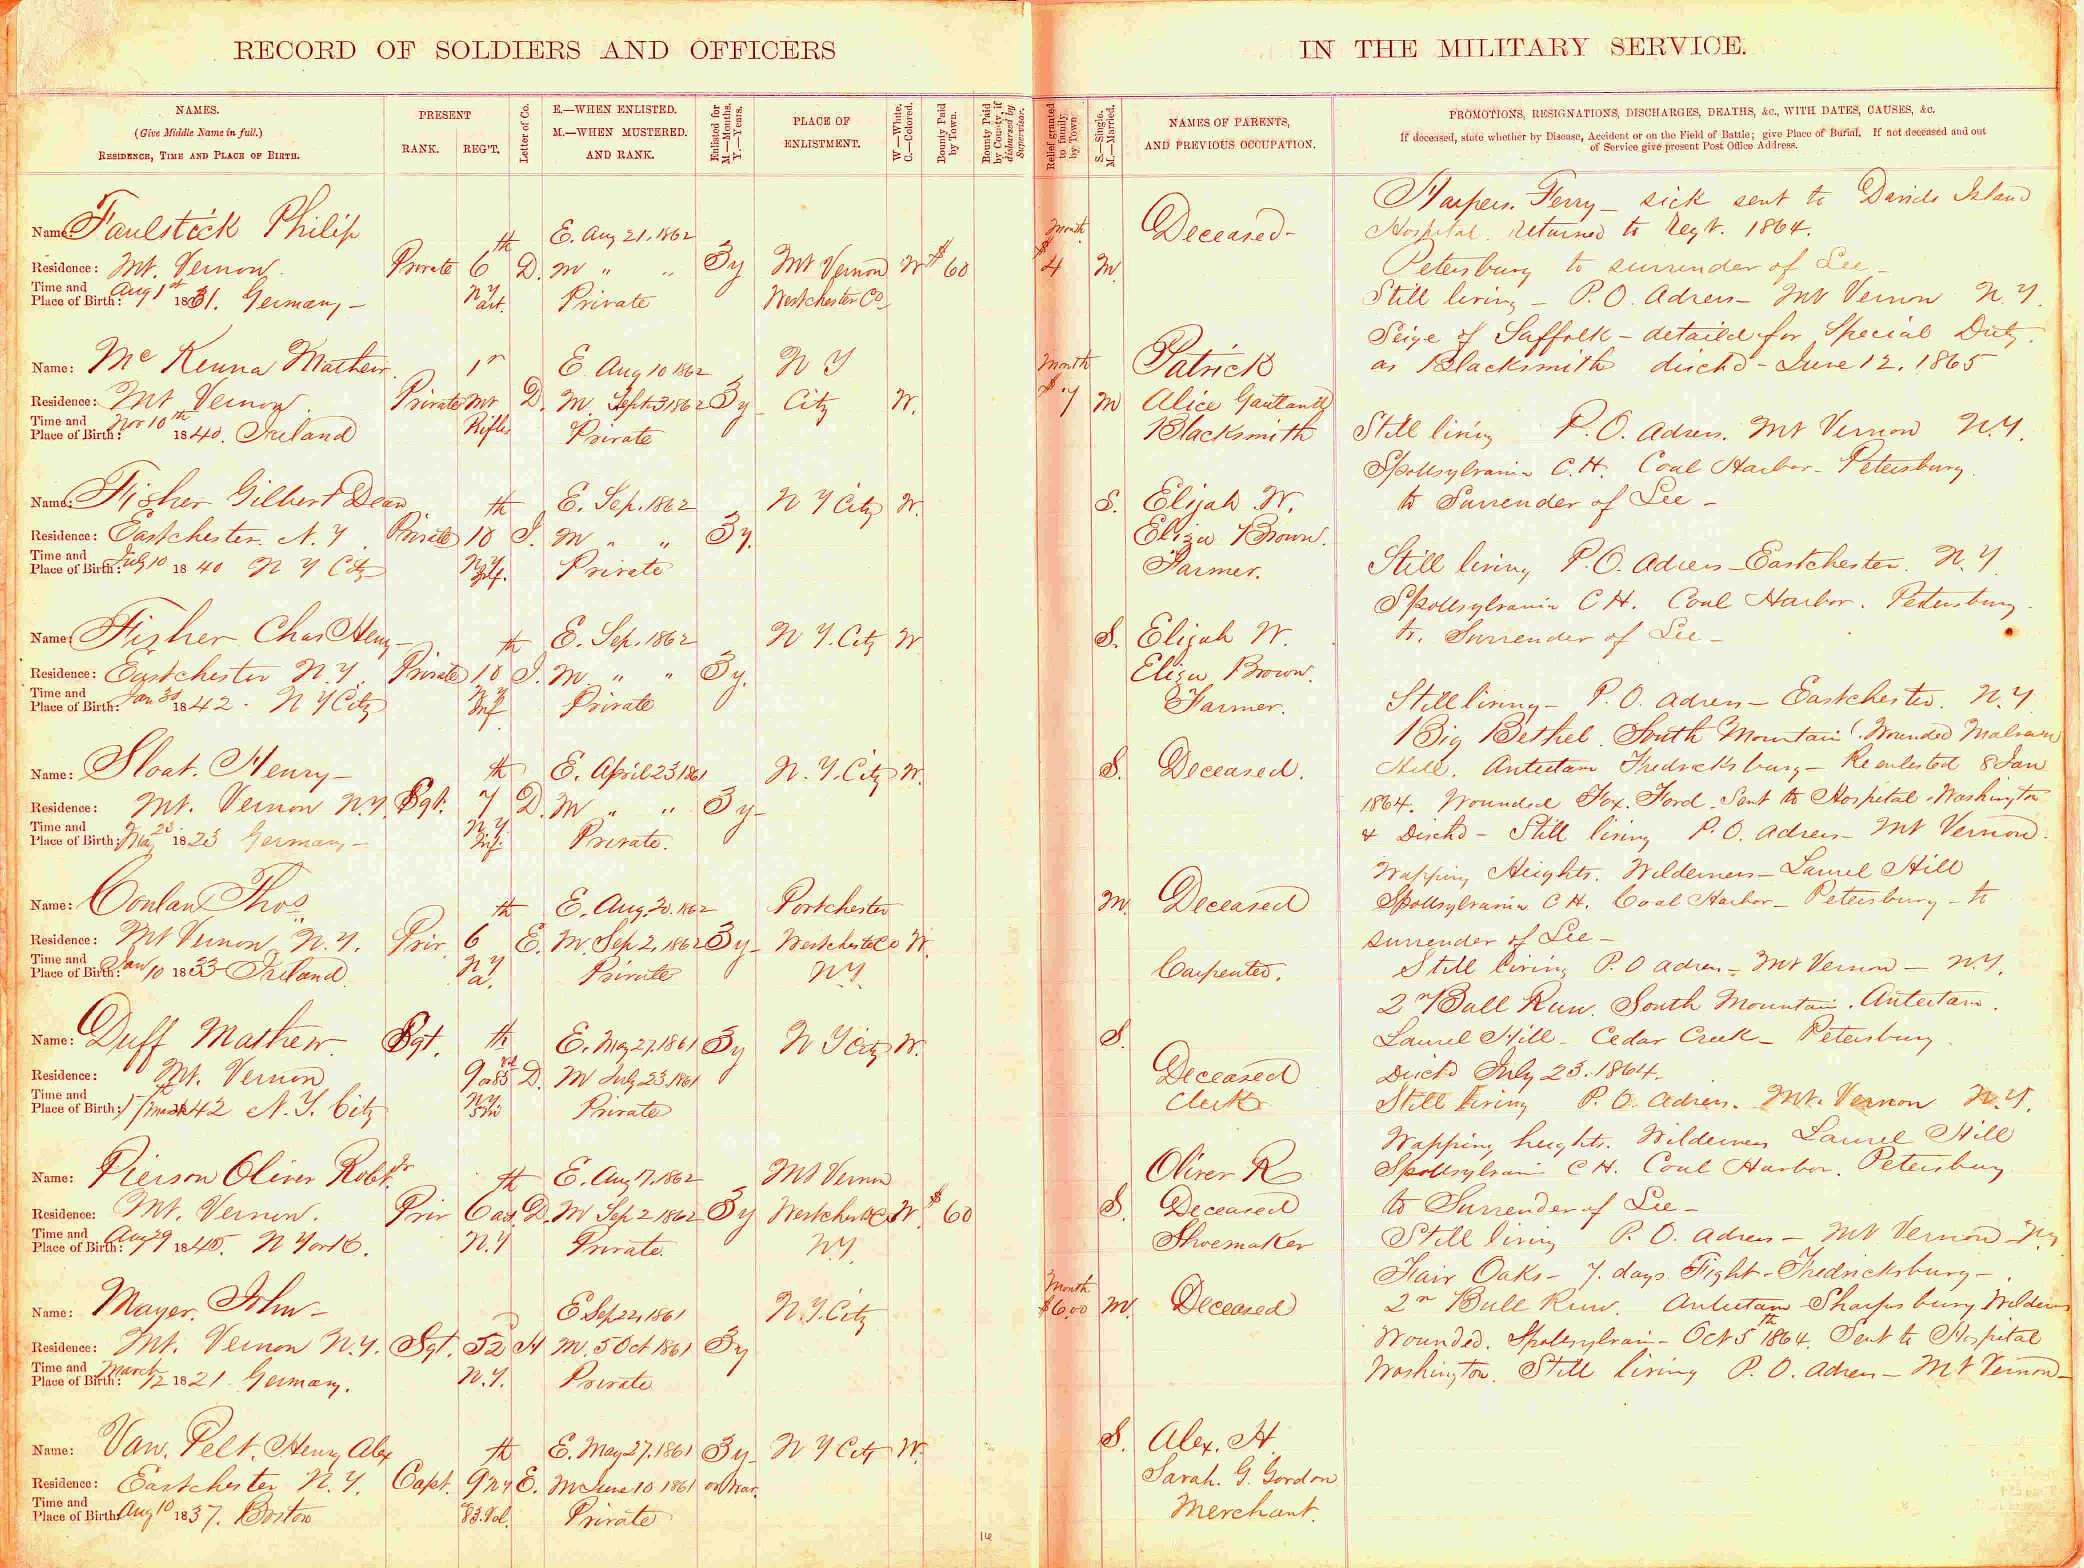 RECORD OF SOLDIERS AND OFFICERS IN THE MILITARY SERVICE.
NAMES.
(Give Middle Name in full.)
RESIDENCE, TIME AND PLACE OF BIRTH.
PRESENT
RANK. REG'T.
Letter of Co.
E.—WHEN ENLISTED.
M.—WHEN MUSTERED.
AND RANK.
Enlisted for
M.—Months.
Y.—Years.
PLACE OF
ENLISTMENT.
W.—White.
C.—Colored.
Bounty Paid
by Town.
Bounty Paid
by County, if
disbursed by
Supervisor.
Relief granted
to family,
by Town
S.—Single.
M.—Married.
NAMES OF PARENTS,
AND PREVIOUS OCCUPATION.
PROMOTIONS, RESIGNATIONS, DISCHARGES, DEATHS, &c., WITH DATES, CAUSES, &c.
If deceased, state whether by Disease, Accident or on the Field of Battle; give Place of Burial. If not deceased and out
of Service give present Post Office Address.
Harpers. Ferry – sick sent to Davids Island
Name: Faulstick Philip th E. Aug 21. 1862 Month Deceased – Hospital. returned to Regt. 1864.
Residence: Mt. Vernon. Private 6 D. M " " 3 y Mt Vernon W $60 $4 M Petersburg to surrender of Lee –
Time and
Place of Birth: Aug 1st 1831. Germany – N.Y. art. Private Westchester Co. Still living – P.O. Adress – Mt Vernon N.Y.
Seige of Suffolk – detailed for Special Duty.
Name: Mc Kenna Mathew. 1r E. Aug 10 1862 N Y Month Patrick as Blacksmith disch'd – June 12. 1865
Residence: Mt Vernon. Private Mt D. M. Sept. 3 1862 3 y – City W. $7 M Alice
Time and
Place of Birth: Nov 10th 1840. Ireland Rifles Private Blacksmith Still living P.O. adress. Mt Vernon N.Y.
Spottsylvania C.H. Coal Harbor – Petersburg.
Name: Fisher Gilbert Dean th E. Sep. 1862 N Y City W. S. Elijah W. to Surrender of Lee –
Residence: Eastchester. N.Y. Private 10 I. M " " 3 y. Eliza Brown.
Time and
Place of Birth: July 10 1840 N Y City N.Y. Inf. Private Farmer. Still living P.O. adress – Eastchester. N.Y.
Spottsylvania C H. Coal Harbor. Petersburg.
Name: Fisher Chas Heny – th E. Sep. 1862 N Y. City W S. Elijah W. to. Surrender of Lee –
Residence: Eastchester N.Y. Private 10 I. M. " " 3 y. Eliza Brown.
Time and
Place of Birth: Jan 30 1842. N Y City N Y Inf. Private Farmer. Still living – P.O. adress – Eastchester. N.Y.
Big Bethel. South Mountain. Wounded Malvern
Name: Sloat. Henry – th E. April 23 1861 N.Y. City W. S. Deceased. Hill. Antietam Fredricksburg – Reenlisted 8 Jan
Residence: Mt. Vernon N.Y. Sgt. 7 D. M " " 3 y – 1864. Wounded Fox. Ford. Sent to Hospital. Washington
Time and
Place of Birth: May 23. 1823 Germany – N.Y. Inf. Private. & Disch'd – Still living P.O. adress – Mt Vernon.
Wapping Heights. Wilderness – Laurel Hill
Name: Conlan Thos th E. Aug. 30. 1862 Portchester M. Deceased Spottsylvania C H. Coal Harbor – Petersburg – to
Residence: Mt Vernon N.Y. Priv. 6 E. M. Sep 2, 1862 3 y – Westchester Co W. surrender of Lee –
Time and
Place of Birth: Jan 10 1833 Ireland. N Y a. Private N.Y. Carpenter. Still living P.O adress – Mt Vernon – N.Y.
2n Bull Run. South Mountain. Antietam.
Name: Duff Mathew Sgt. th E. May 27. 1861 3 y N Y City W. S. Laurel Hill – Cedar Creek – Petersburg.
Residence: Mt. Vernon 9 or 83 Vol D. M July 23. 1861 Deceased Disch'd July 23. 1864.
Time and
Place of Birth: 17th March 1842 N.Y. City N.Y. Private Clerk Still living P.O. adress. Mt. Vernon N.Y.
Wapping heights. Wilderness Laurel Hill
Name: Pierson Oliver Robt. Jr th E. Aug 17. 1862 Mt Vernon Oliver R Spottsylvania C H. Coal Harbor. Petersburg
Residence: Mt. Vernon. Priv 6 art. D. M Sep 2 1862 3 y Westchester Co W. $60 S. Deceased to Surrender of Lee –
Time and
Place of Birth: Aug 29 1840. N York. N.Y Private. N.Y. Shoemaker Still living P.O. adress – Mt Vernon – N.y
Fair Oaks – 7. days. Fight – Fredricksburg –
Name: Mayer. John – E Sep 22, 1861 N.Y. City Month $6.00 M. Deceased 2n Bull Run. Antietam – Sharpsburg Wilderness
Residence: Mt. Vernon N.Y. Sgt. 52 H M. 5 Oct 1861 3 y Wounded. Spottsylvania – Oct 5th 1864. Sent to Hospital
Time and
Place of Birth: March 12 1821. Germany. N.Y. Private Washington. Still living P.O. adress – Mt Vernon –
Name: Van. Pelt. Henry Alex th E. May 27. 1861 3 y – N Y City W. S. Alex. H.
Residence: Eastchester N.Y. Capt. 9 N Y E. M June 10 1861 or War. Sarah. G. Gordon
Time and
Place of Birth: Aug 10 1837. Boston or 83. Vol. Private Merchant.